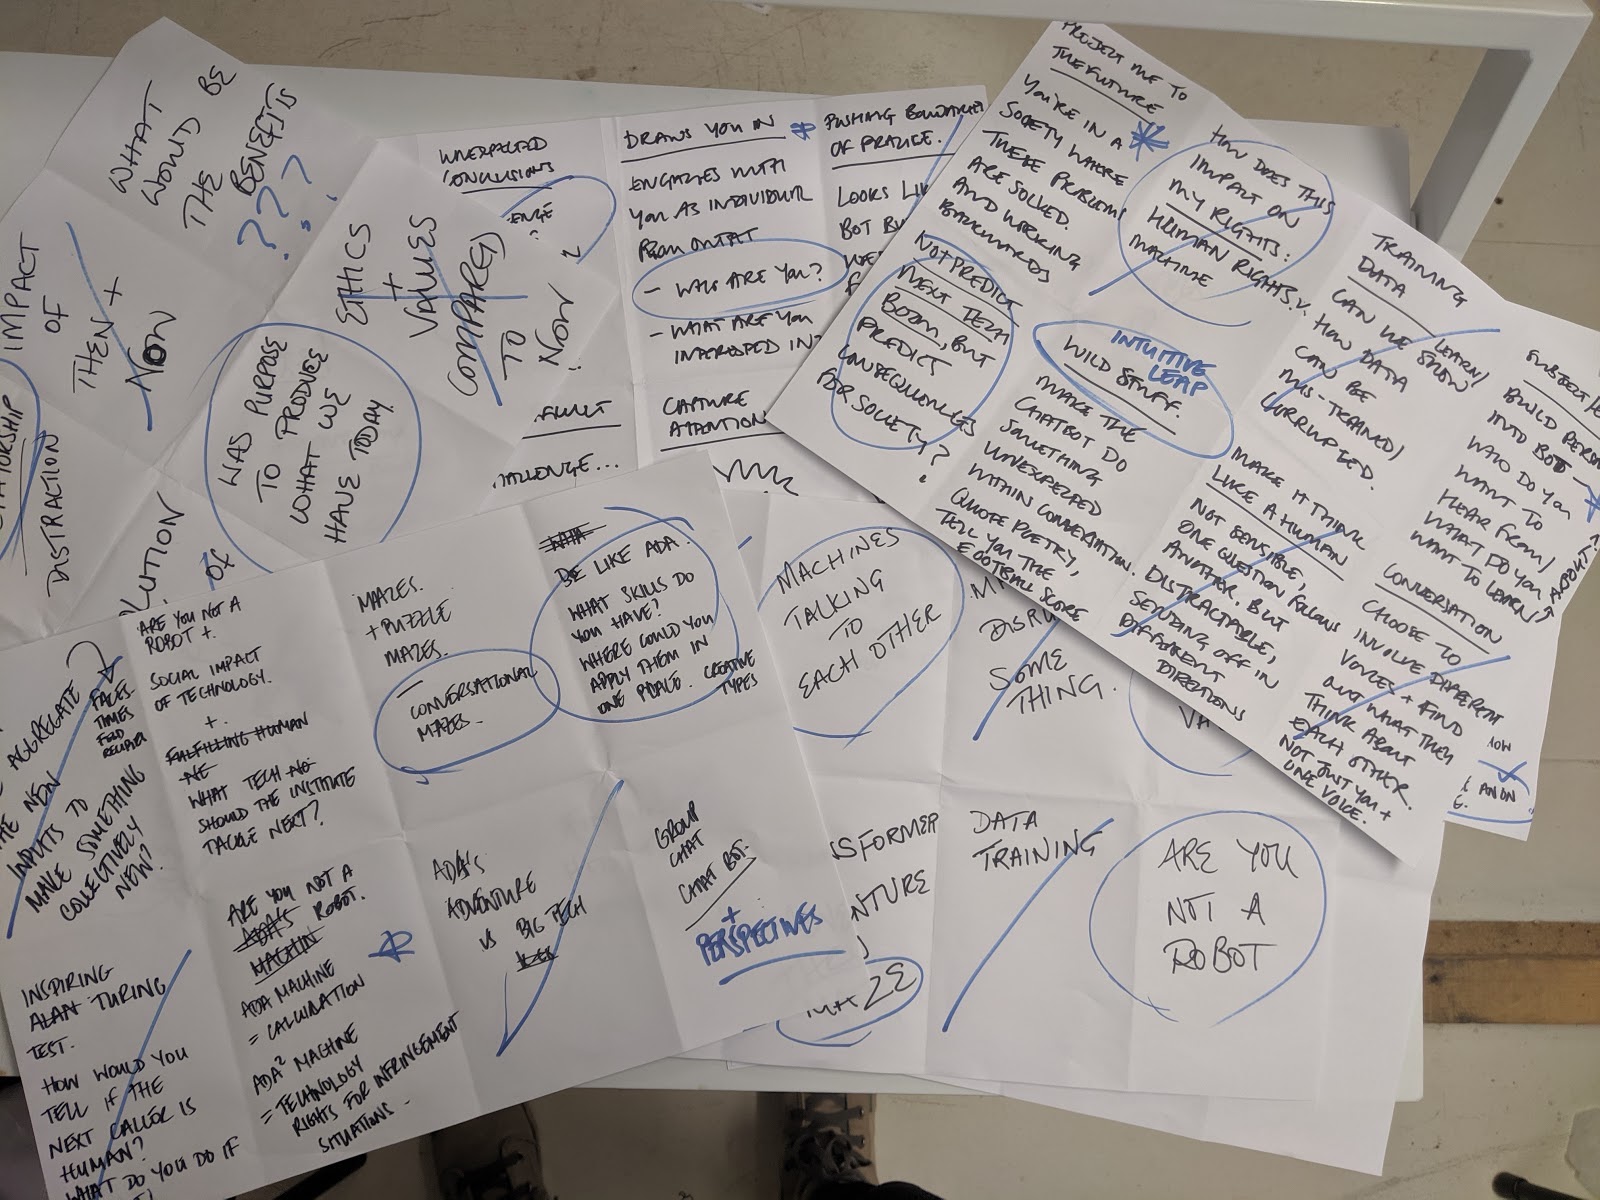 WHAT
WOULD BE
THE
BENEFITS
? ? ?
IMPACT
OF
THEN +
NOW
DISTRACTION
WAS PURPOSE
TO PRODUCE
WHAT WE
HAVE TODAY
ETHICS
+
VALUES
COMPARE(S)
TO
NOW
?
OF
UNEXPECTED
CONCLUSIONS
DRAWS YOU IN
ENGAGES WITH
YOU AS INDIVIDUAL
FROM OUTSET
- WHO ARE YOU?
- WHAT ARE YOU
INTERESTED IN?
CAPTURE
ATTENTION
PUSHING BOUNDARIES
OF PRACTICE.
LOOKS
BOT
PROJECT ME TO
THE FUTURE
YOU'RE IN A
SOCIETY WHERE
THESE PROBLEMS
ARE SOLVED.
AND WORKING
BACKWARDS
HOW DOES THIS
IMPACT ON
MY RIGHTS:
HUMAN RIGHTS V.
MACHINE
TRAINING
DATA
CAN WE LEARN/
HOW DATA SHOW
CAN BE
MIS-TRAINED/
CORRUPTED.
BUILD
INTO BOT -
WHO DO YOU
WANT TO
HEAR FROM/
WHAT DO YOU
WANT TO LEARN
ABOUT
NOT PREDICT
NEXT TECH
BOOM, BUT
PREDICT
CONSEQUENCES
FOR SOCIETY?
INTUITIVE
LEAP
WILD STUFF.
MAKE THE
CHATBOT DO
SOMETHING
UNEXPECTED
WITHIN CONVERSATION.
QUOTE POETRY,
TELL YOU THE
FOOTBALL SCORE
MAKE IT THINK
LIKE A HUMAN
NOT SENSIBLE,
ONE QUESTION FOLLOWS
ANOTHER. BUT
DISTRACTABLE,
SENDING OFF IN
DIFFERENT
DIRECTIONS
CONVERSATION
CHOOSE TO
INVOLVE DIFFERENT
VOICES + FIND
OUT WHAT THEY
THINK ABOUT
EACH OTHER.
NOT JUST YOU +
ONE VOICE.
AGGREGATE
NEW
INPUTS TO
MAKE SOMETHING
COLLECTIVELY
NEW?
FACES
TIMES
ARE YOU NOT A
ROBOT +.
SOCIAL IMPACT
OF TECHNOLOGY.
+.
FULFILLING HUMAN
NE
WHAT TECH NO
SHOULD THE INSTITUTE
TACKLE NEXT?
MAZES.
+ PUZZLE
MAZES.
-
CONVERSATIONAL
MAZES.
BE LIKE ADA.
WHAT SKILLS DO
YOU HAVE?
WHERE COULD YOU
APPLY THEM IN
ONE PLACE. CREATIVE
TYPES
INSPIRING
ALAN TURING
TEST.
HOW WOULD YOU
TELL IF THE
NEXT CALLER IS
HUMAN?
WHAT DO YOU DO IF
ARE YOU NOT A
ADA'S ROBOT.
MACHIN
ADA MACHINE
= CALCULATION
ADA² MACHINE
= TECHNOLOGY
RIGHTS FOR INFRINGEMENT
SITUATIONS.
ADA'S
ADVENTURE
VS BIG TECH
GROUP
CHAT
CHAT BOT.
+
PERSPECTIVES
MACHINES
TALKING
TO
EACH OTHER
SOME
THING.
DATA
TRAINING
ARE YOU
NOT A
ROBOT